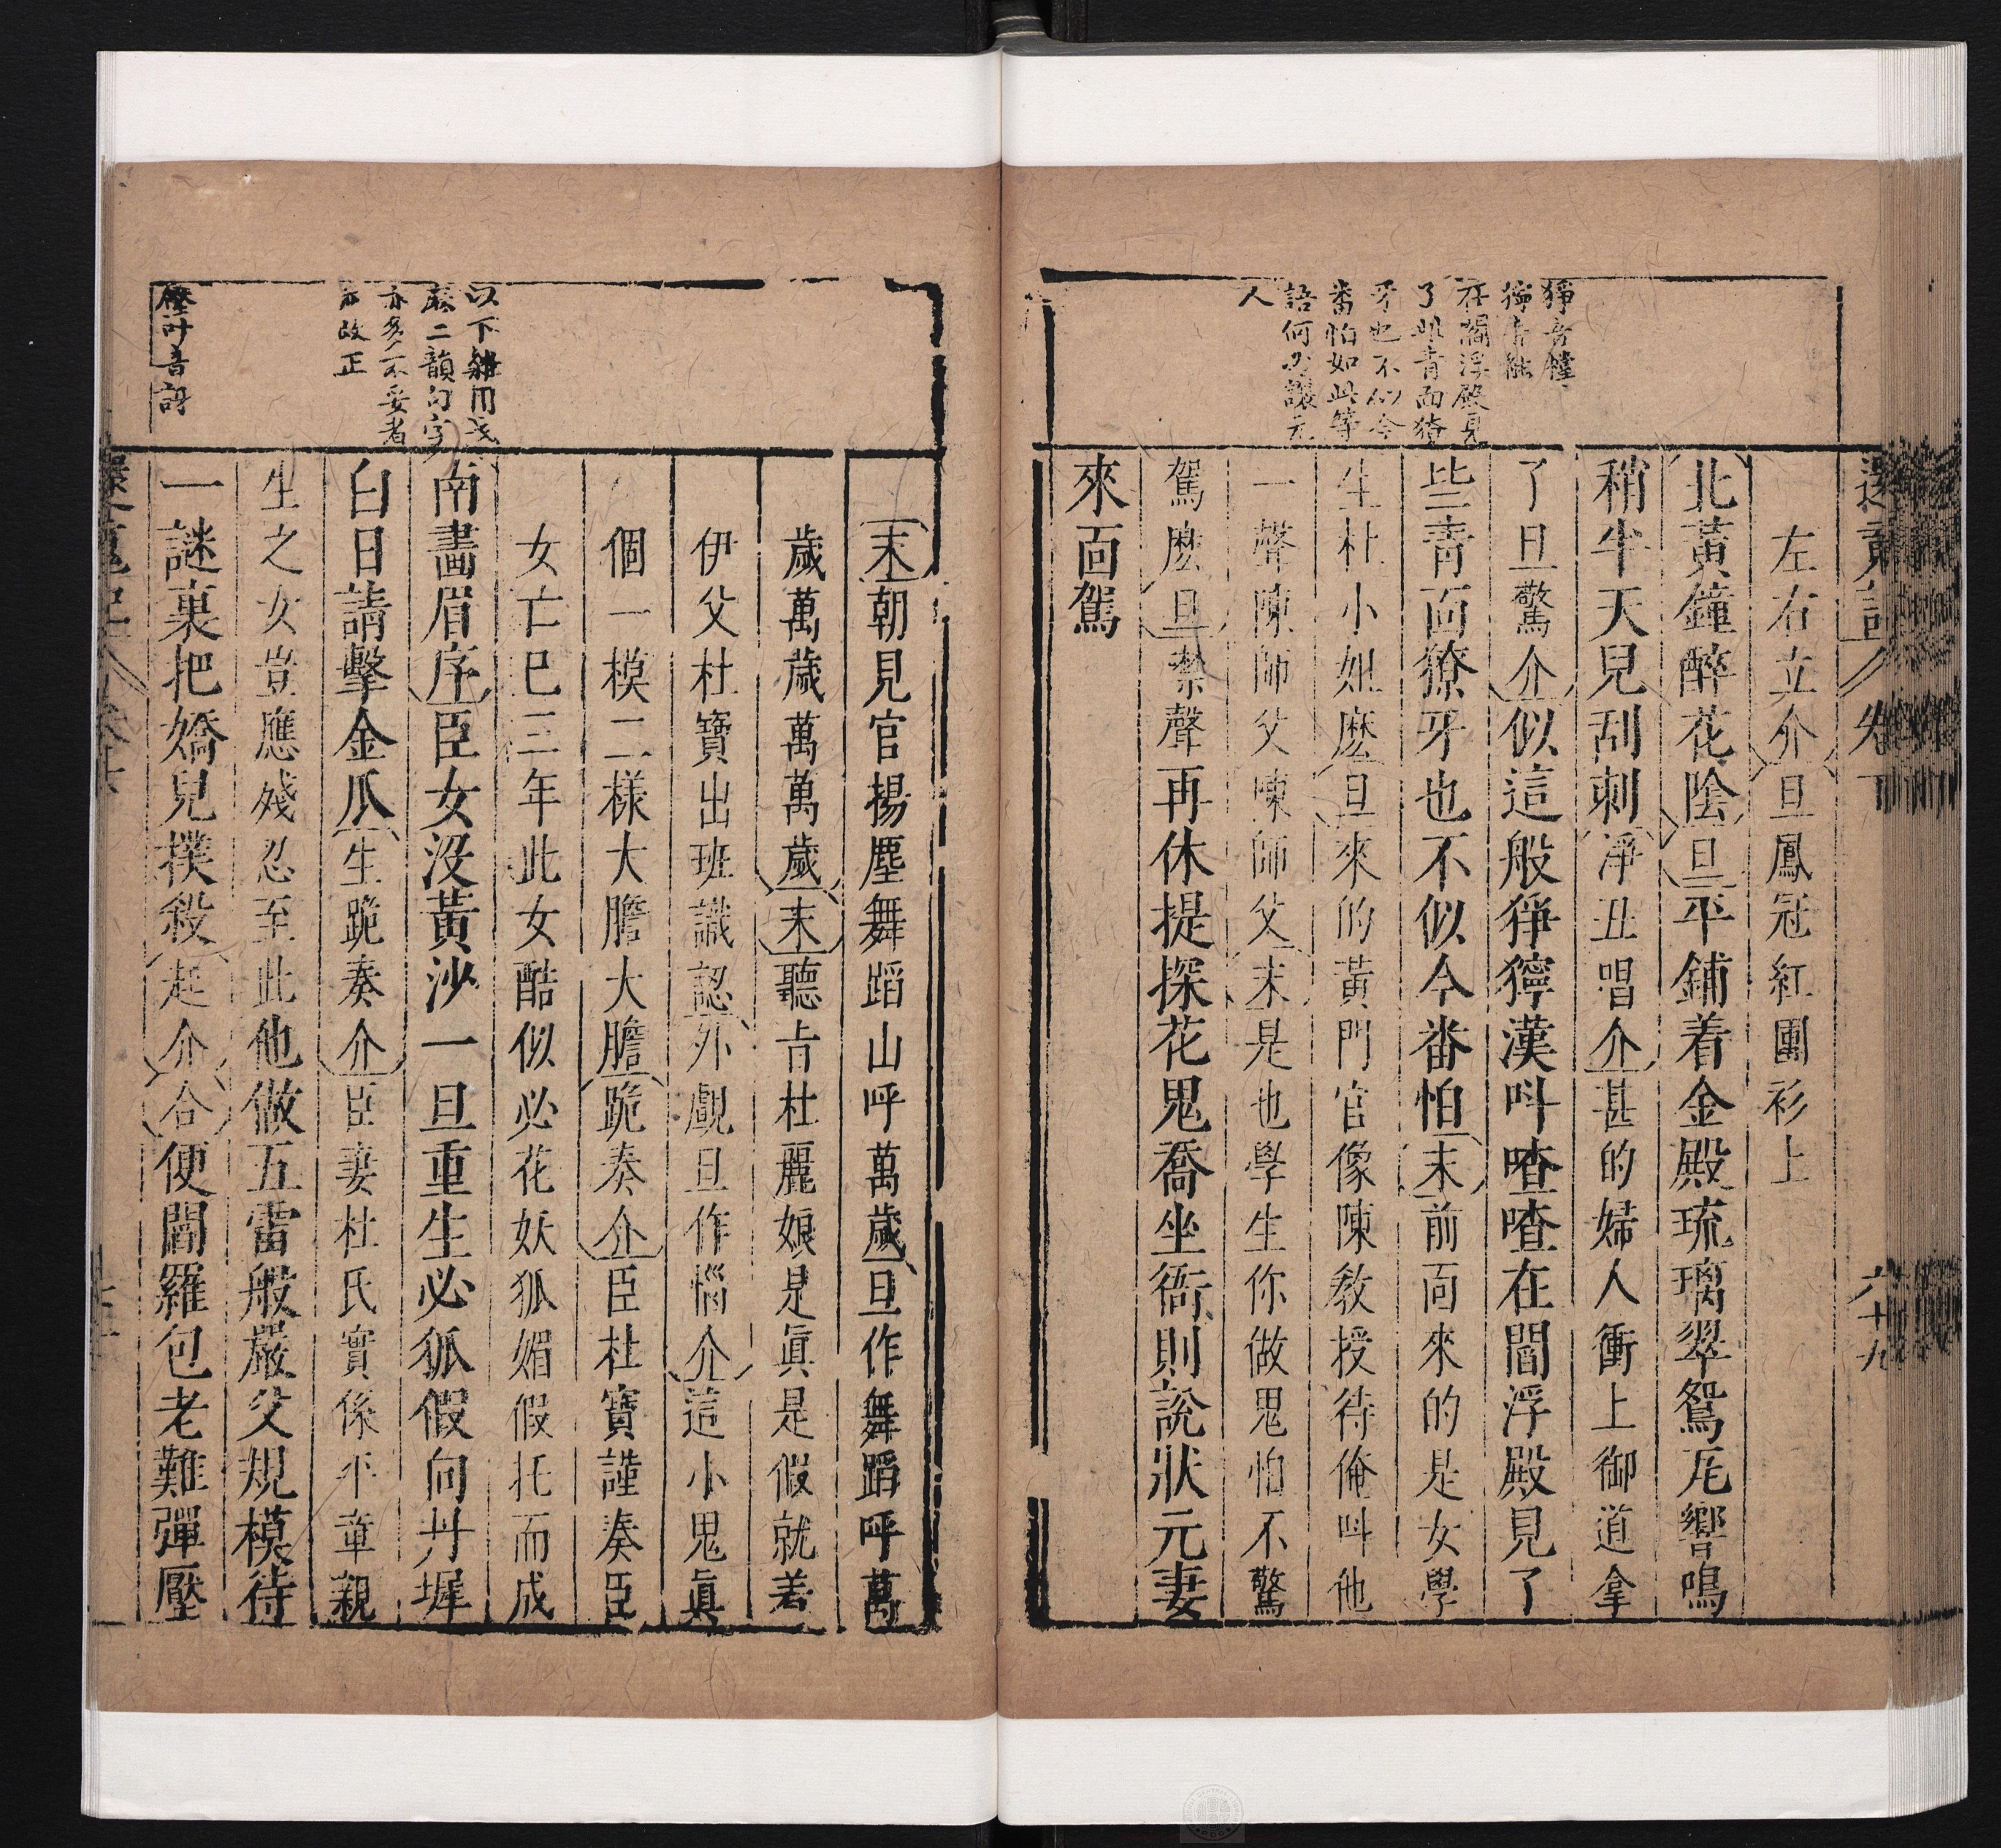 還魂記 卷下 六十九
猙音錚
獰音能
在閻浮殿見
了那青面獠
牙也不似今
番怕如此等
語何必讓元
人
左右立介旦鳳冠紅團衫上
北黃鐘醉花陰旦平鋪着金殿琉璃翠鴛瓦響鳴
稍半天兒刮刺淨丑唱介甚的婦人衝上御道拿
了旦驚介似這般猙獰漢呌喳喳在閻浮殿見了
些青面獠牙也不似今番怕末前面來的是女學
生杜小姐麽旦來的黃門官像陳教授待俺呌他
一聲陳師父陳師父末是也學生你做鬼怕不驚
駕麽旦禁聲再休提探花鬼喬坐衙則説狀元妻
來面駕
以下雜用
二韻句字
亦多不妥者
亦改正
壓叶音訝
末朝見官揚塵舞蹈山呼萬歲旦作舞蹈呼萬
歲萬歲萬萬歲末聽旨杜麗娘是真是假就著
伊父杜寶出班識認外覷旦作惱介這小鬼真
個一模二樣大膽大膽跪奏介臣杜寶謹奏臣
女亡巳三年此女酷似必花妖狐媚假托而成
南畫眉序臣女沒黃沙一旦重生必狐假向丹墀
白日請擊金瓜生跪奏介臣妻杜氏實係平章親
生之女豈應殘忍至此他做五雷般嚴父規模待
一謎裏把嬌兒撲殺起介合便閻羅包老難彈壓